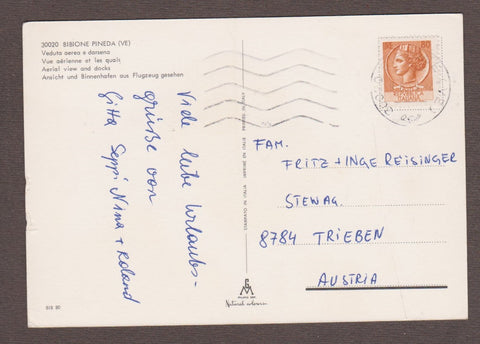 30020 BIBIONE PINEDA (VE)
Veduta aerea e darsena
Vue aérienne et les quais
Aerial view and docks
Ansicht und Binnenhafen aus Flugzeug gesehen
Viele liebe Urlaubs-
grüße von
Gitta Seppi Nina + Roland
FAM.
FRITZ + INGE REISINGER
STEWAG.
8784 TRIEBEN
AUSTRIA
STAMPATO IN ITALIA IMPRIMÉ EN ITALIE PRINTED IN ITALY
Natural colours
BIB 80
80